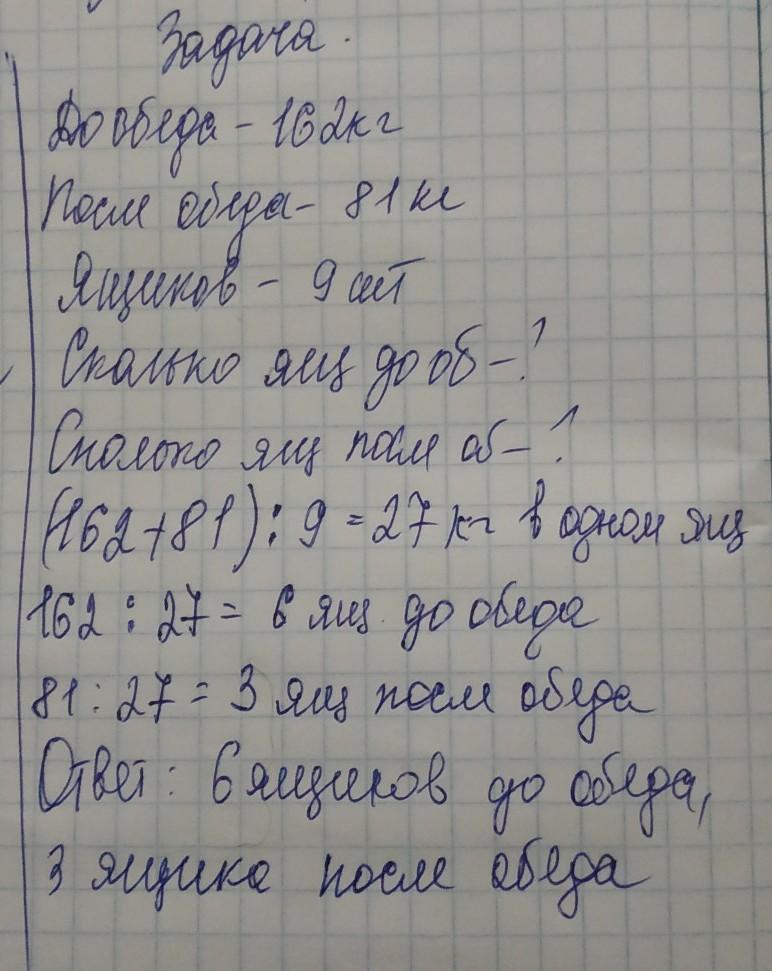 Задача.
До обеда - 162кг
После обеда - 81 кг
Ящиков - 9 шт
Сколько ящ до об - ?
Сколько ящ после об - ?
(162+81) : 9 = 27 кг в одном ящ
162 : 27 = 6 ящ. до обеда
81 : 27 = 3 ящ после обеда
Ответ: 6 ящиков до обеда,
3 ящика после обеда